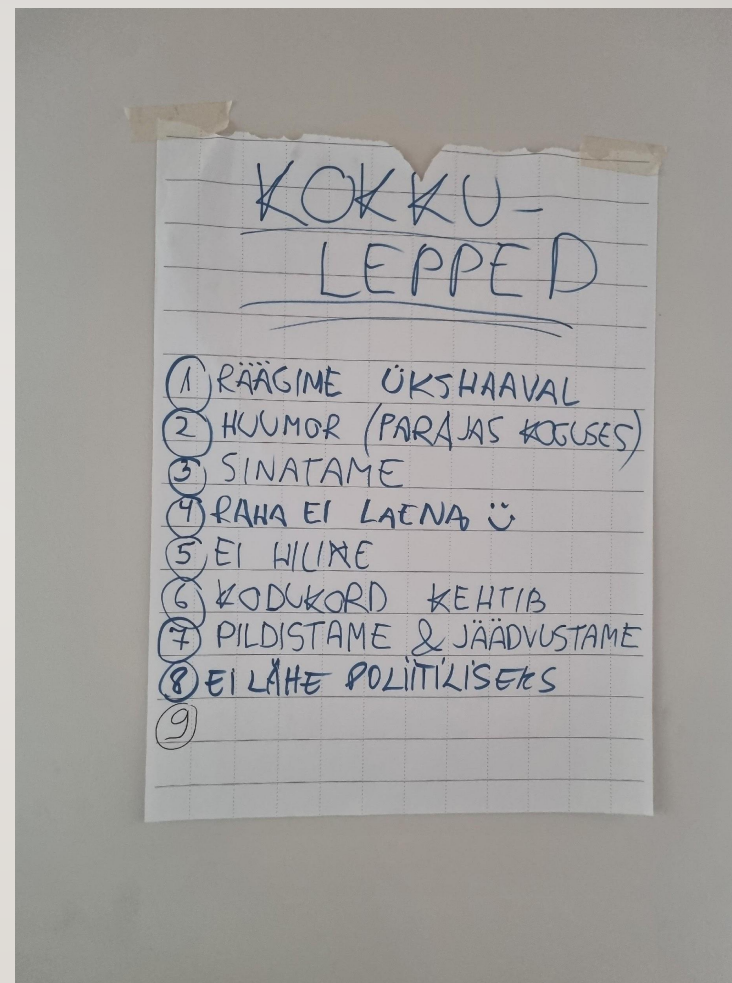 KOKKU-
LEPPED
1 RÄÄGIME ÜKSHAAVAL
2 HUUMOR (PARAJAS KOGUSES)
3 SINATAME
4 RAHA EI LAENA :)
5 EI HILINE
6 KODUKORD KEHTIB
7 PILDISTAME & JÄÄDVUSTAME
8 EI LÄHE POLIITILISEKS
9